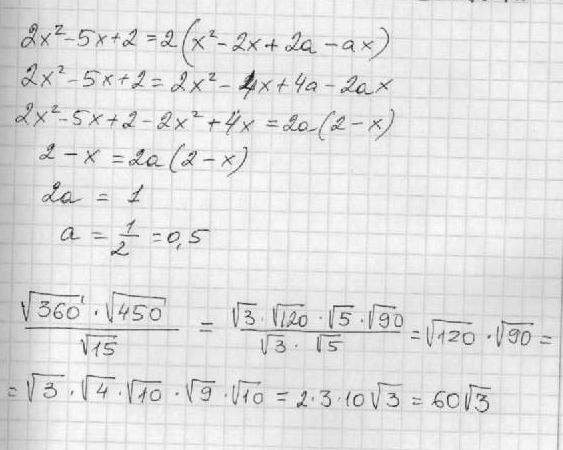 2x²-5x+2=2(x²-2x+2a-ax)
2x²-5x+2=2x²-4x+4a-2ax
2x²-5x+2-2x²+4x=2a(2-x)
2-x=2a(2-x)
2a = 1
a = 1/2 = 0,5
√360 · √450 / √15 = √3 · √120 · √5 · √90 / √3 · √5 = √120 · √90 =
= √3 · √4 · √10 · √9 · √10 = 2·3·10√3 = 60√3